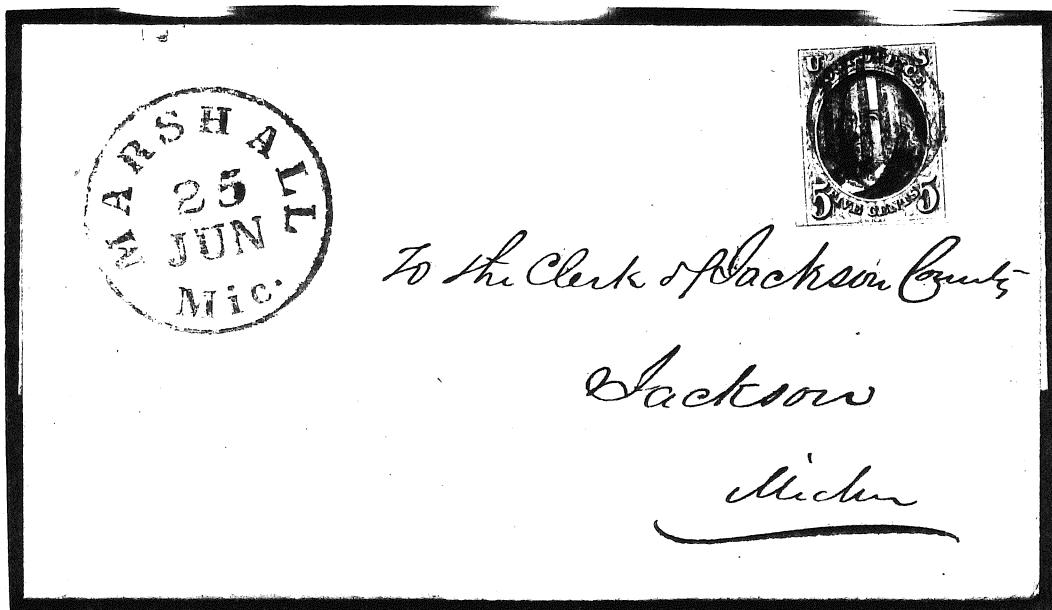 MARSHALL
25
JUN
Mic.
U S
POST OFFICE
5 FIVE CENTS 5
To the Clerk of Jackson County
Jackson
Michn